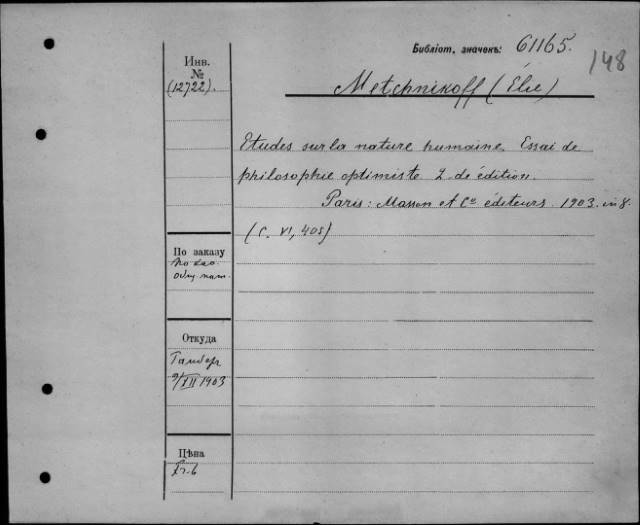 Библіот. значекъ: 61165.
148
Инв.
№
(12722).
Metchnikoff (Élie)
Etudes sur la nature humaine. Essai de
philosophie optimiste 2-de édition.
Paris: Masson et Cie éditeurs. 1903. in 8.
(C. VI, 405)
По заказу
Откуда
9/XII 1903
Цѣна
Fr. 6